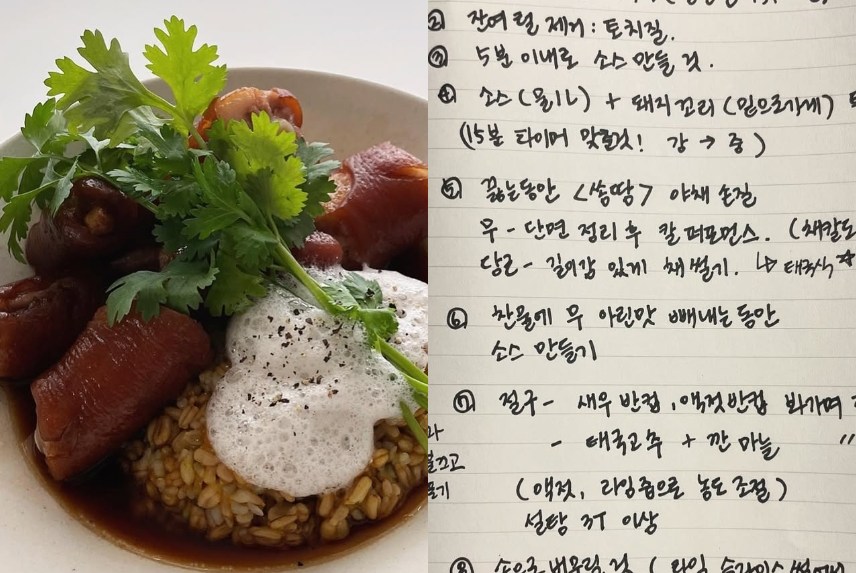 ② 잔여 털 제거 : 토치질.
③ 5분 이내로 소스 만들 것.
④ 소스 (물 1L) + 돼지꼬리 (밑으로가게)
(15분 타이머 맞출것! 강 → 중)
⑤ 끓는동안 <쏨땀> 야채 손질
무 - 단면 정리 후 칼 퍼포먼스. (채칼도
당근 - 길이감 있게 채썰기. ↳ 태국식☆
⑥ 찬물에 무 아린맛 빼내는 동안
소스 만들기
⑦ 절구 - 새우 반컵, 액젓 반컵 봐가며
- 태국고추 + 깐 마늘 "
(액젓, 라임즙으로 농도 조절)
설탕 3T 이상